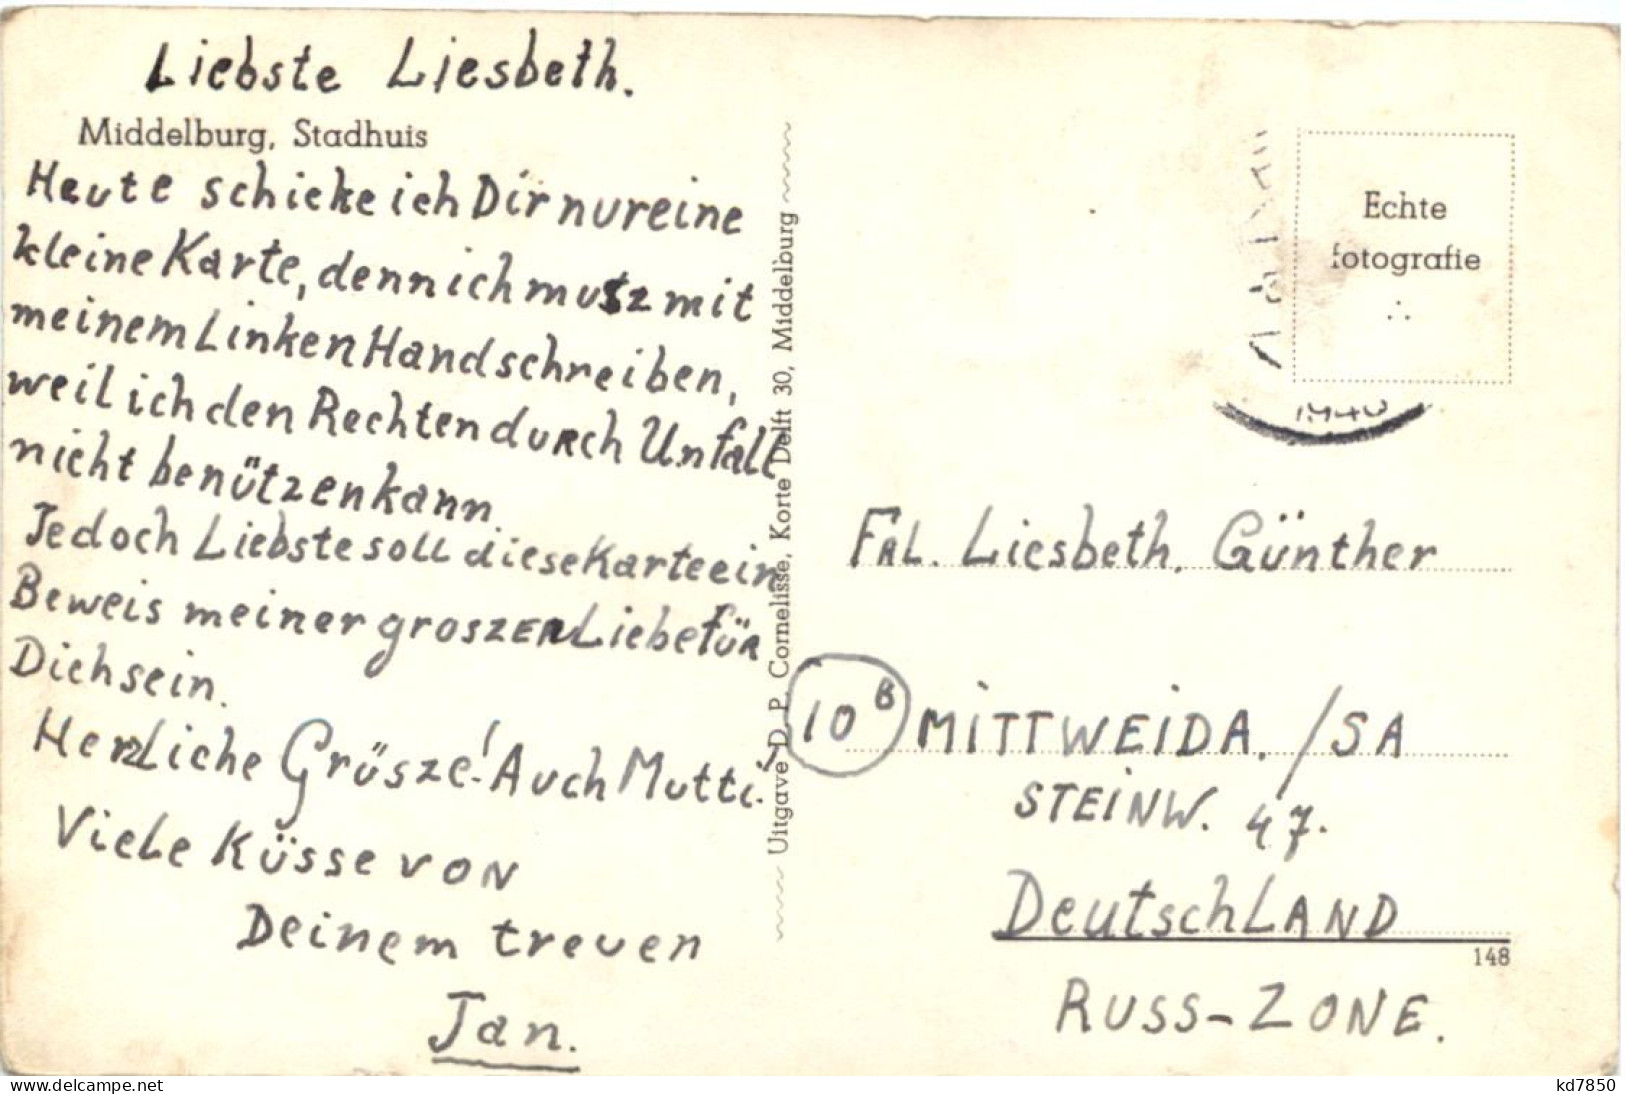 Liebste Liesbeth.
Middelburg, Stadhuis
Heute schicke ich Dir nur eine
kleine Karte, denn ich musz mit
meinem Linken Hand schreiben,
weil ich den Rechten durch Unfall
nicht benützen kann.
Jedoch Liebste soll diese Karte ein
Beweis meiner groszen Liebe für
Dich sein.
Herzliche Grüsze! Auch Mutti.
Viele Küsse von
Deinem treuen
Jan.
Uitgave D. P. Cornelisse, Korte Delft 30, Middelburg
Echte
fotografie
Frl. Liesbeth. Günther
10B MITTWEIDA. /SA
STEINW. 47.
DeutschLAND
148
RUSS-ZONE.
www.delcampe.net
kd7850